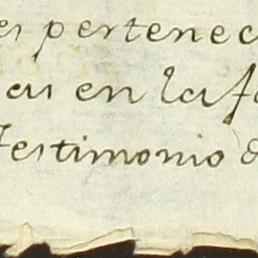 es pertenec
cas en la fa
Testimonio d